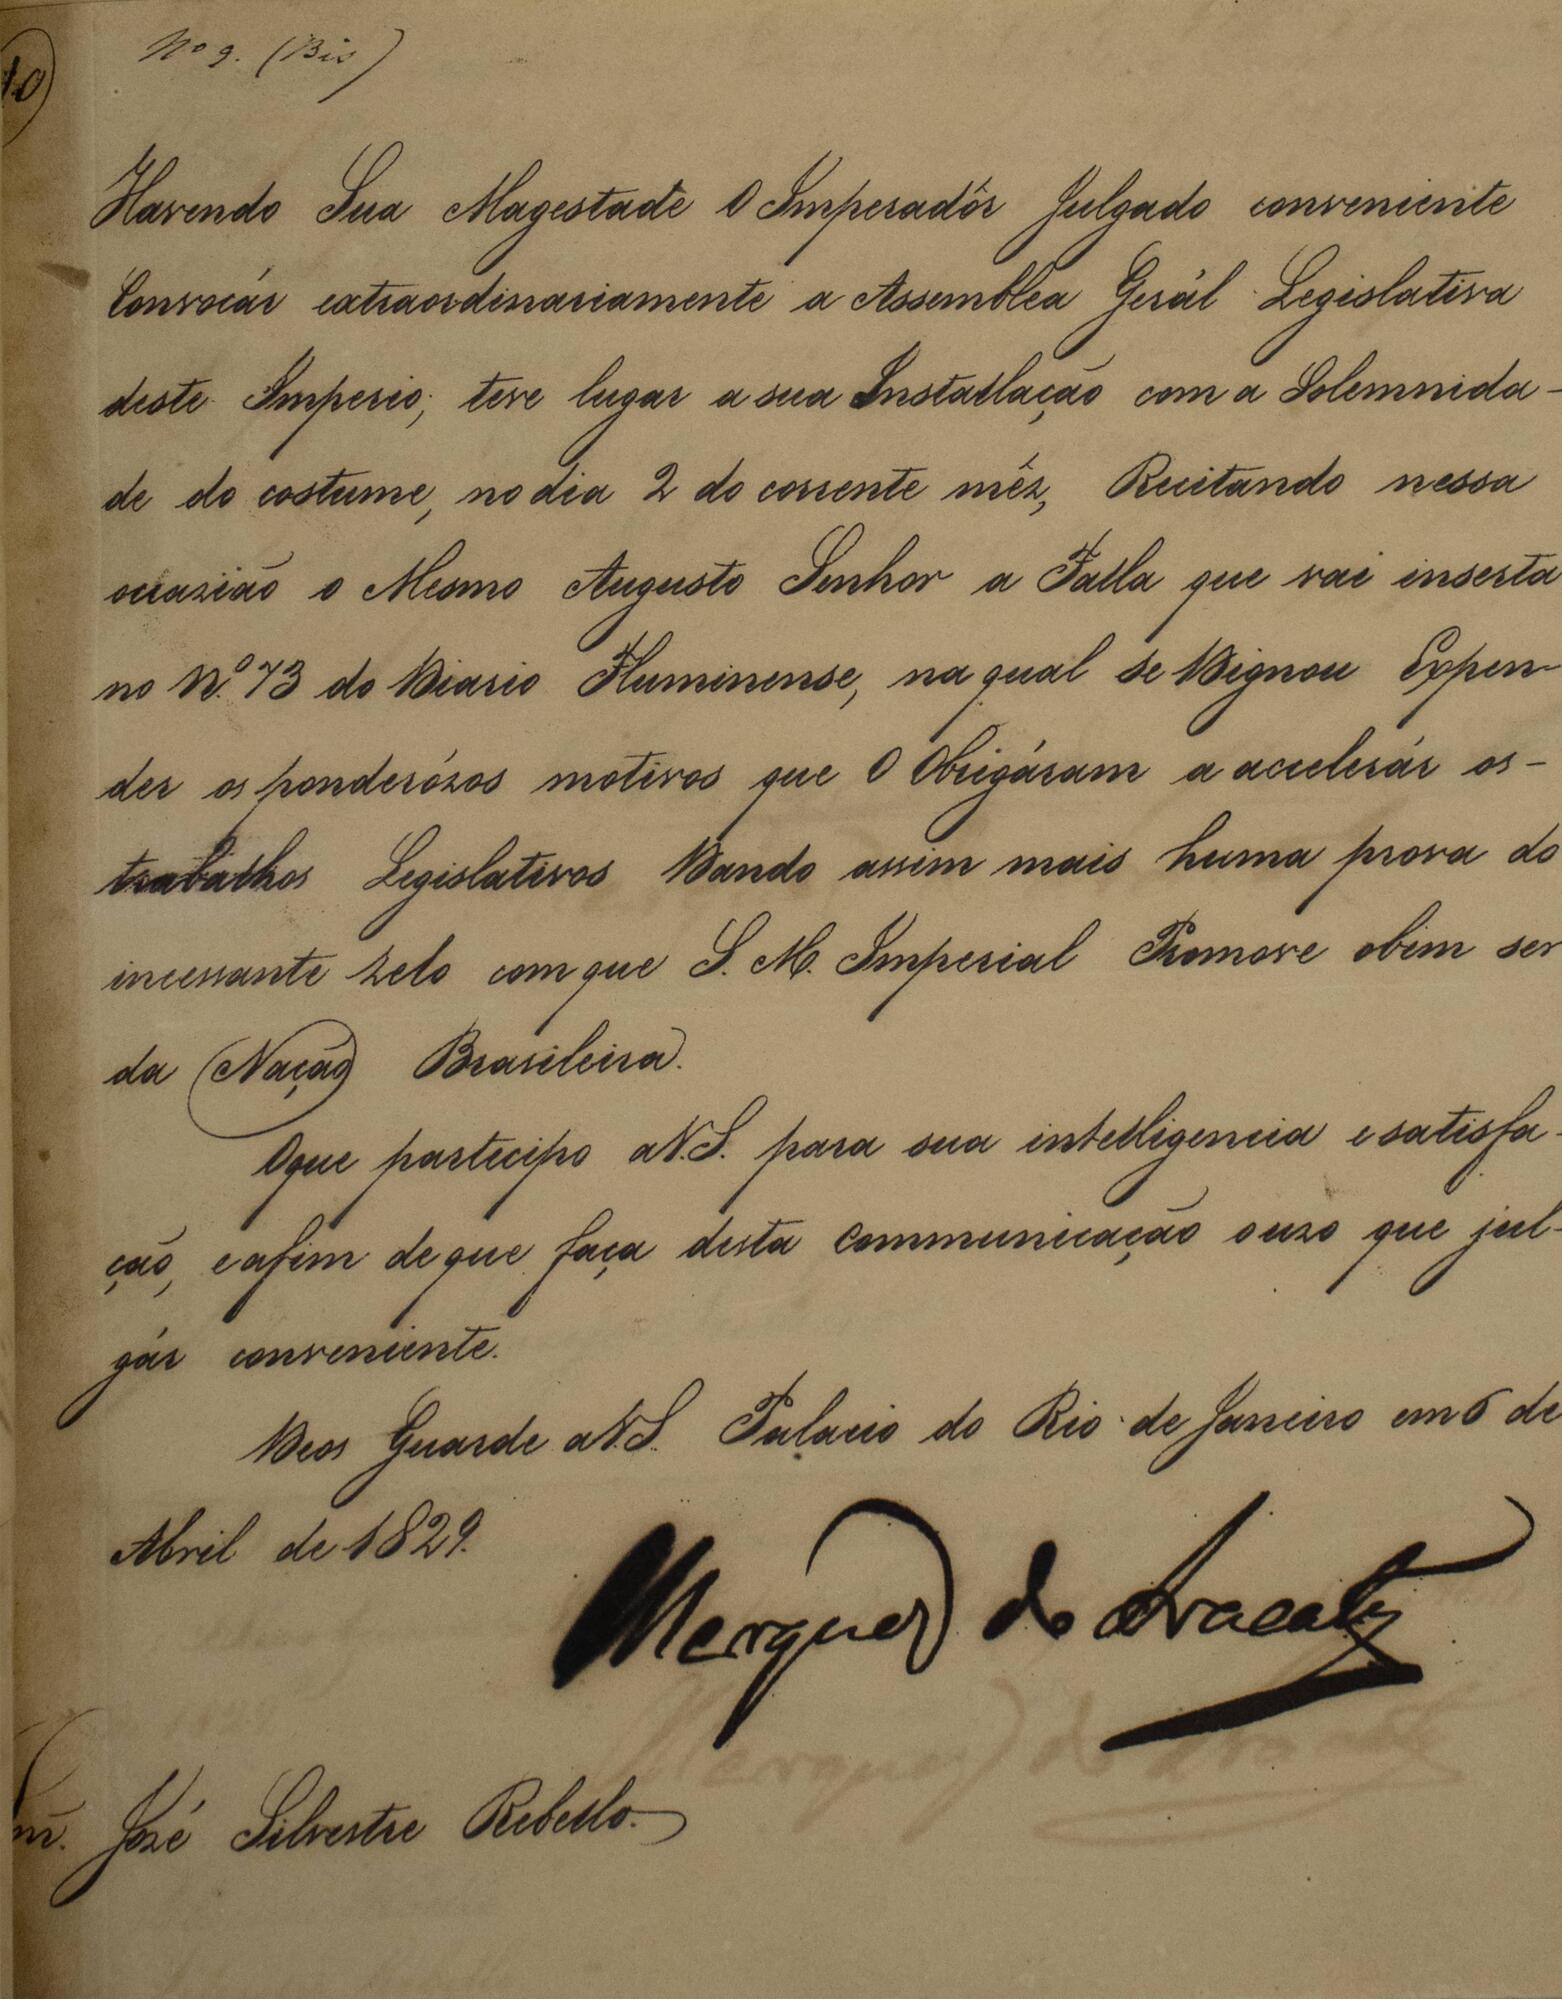 10
Nº 9. (Bis)
Havendo Sua Magestade O Imperadôr Julgado conveniente
Convocár extraordinariamente a Assemblea Gerál Legislativa
deste Imperio, teve lugar a sua Installação com a Solemnida-
de do costume, no dia 2 do corrente mêz, Recitando nessa
occazião o Mesmo Augusto Senhor a Falla que vai inserta
no Nº. 73 do Diario Fluminense, na qual se Dignou Expen-
der os ponderózos motivos que O Obrigáram a accelerár os-
trabalhos Legislativos Dando assim mais huma prova do
incessante zelo com que S. M. Imperial Promove o bem ser
da Nação Brasileira.
O que participo a V. S. para sua intelligencia e satisfa-
ção, e afim de que faça desta communicação o uzo que jul-
gár conveniente.
Deos Guarde a V. S. Palacio do Rio de Janeiro em 6 de
Abril de 1829.
Marquez do Aracaty
Snr. José Silvestre Rebello.